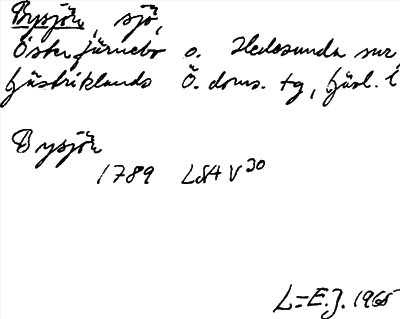 Bysjön, sjö,
Österfärnebo o. Hedesunda snr,
Gästriklands Ö. doms. tg, Gävl. l
Bysjön
1789 LSA V30
L=E.J. 1965